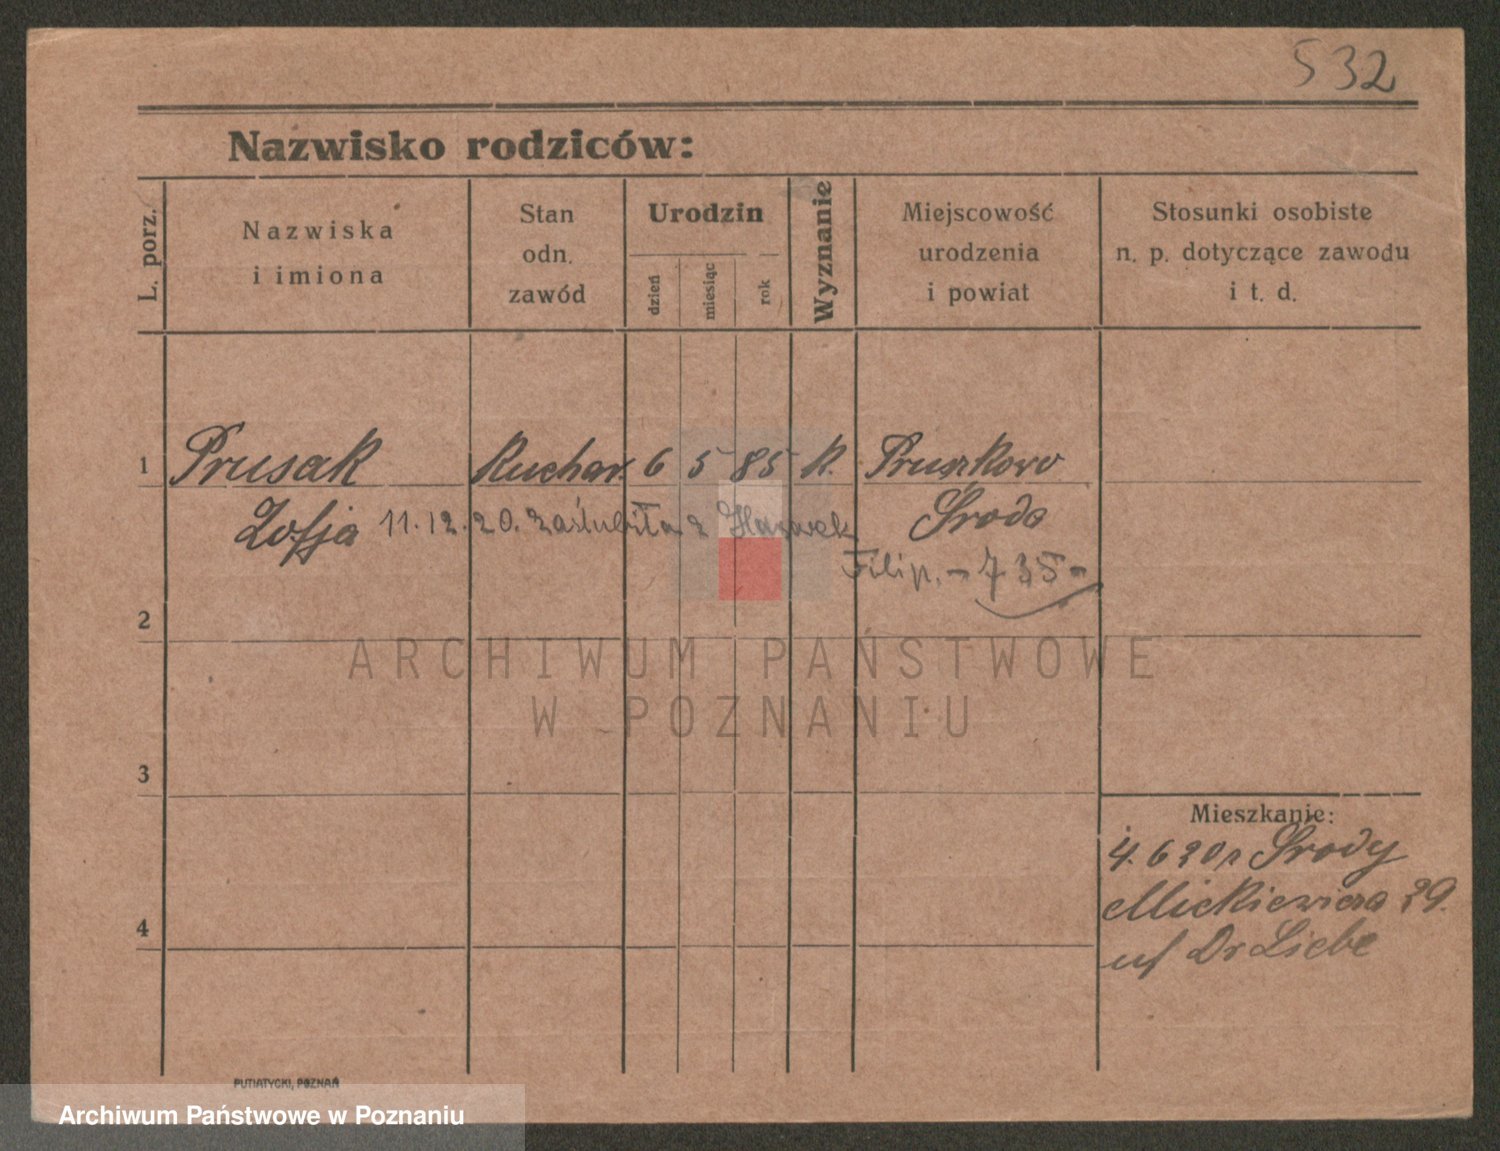 532
Nazwisko rodziców:
L. porz.
Nazwiska
i imiona
Stan
odn.
zawód
Urodzin
dzień
miesiąc
rok
Wyznanie
Miejscowość
urodzenia
i powiat
Stosunki osobiste
n. p. dotyczące zawodu
i t. d.
1 Prusak Kuchar. 6 5 85 k. Pruszkowo
Zofja 11.12.20. zaślubiła z
Środa
Filip. - 735-
2
ARCHIWUM PAŃSTWOWE
W POZNANIU
3
Mieszkanie:
4. 6 20 Środy
Mickiewicza 29.
4
Dr Liebe
PUTIATYCKI, POZNAŃ
Archiwum Państwowe w Poznaniu